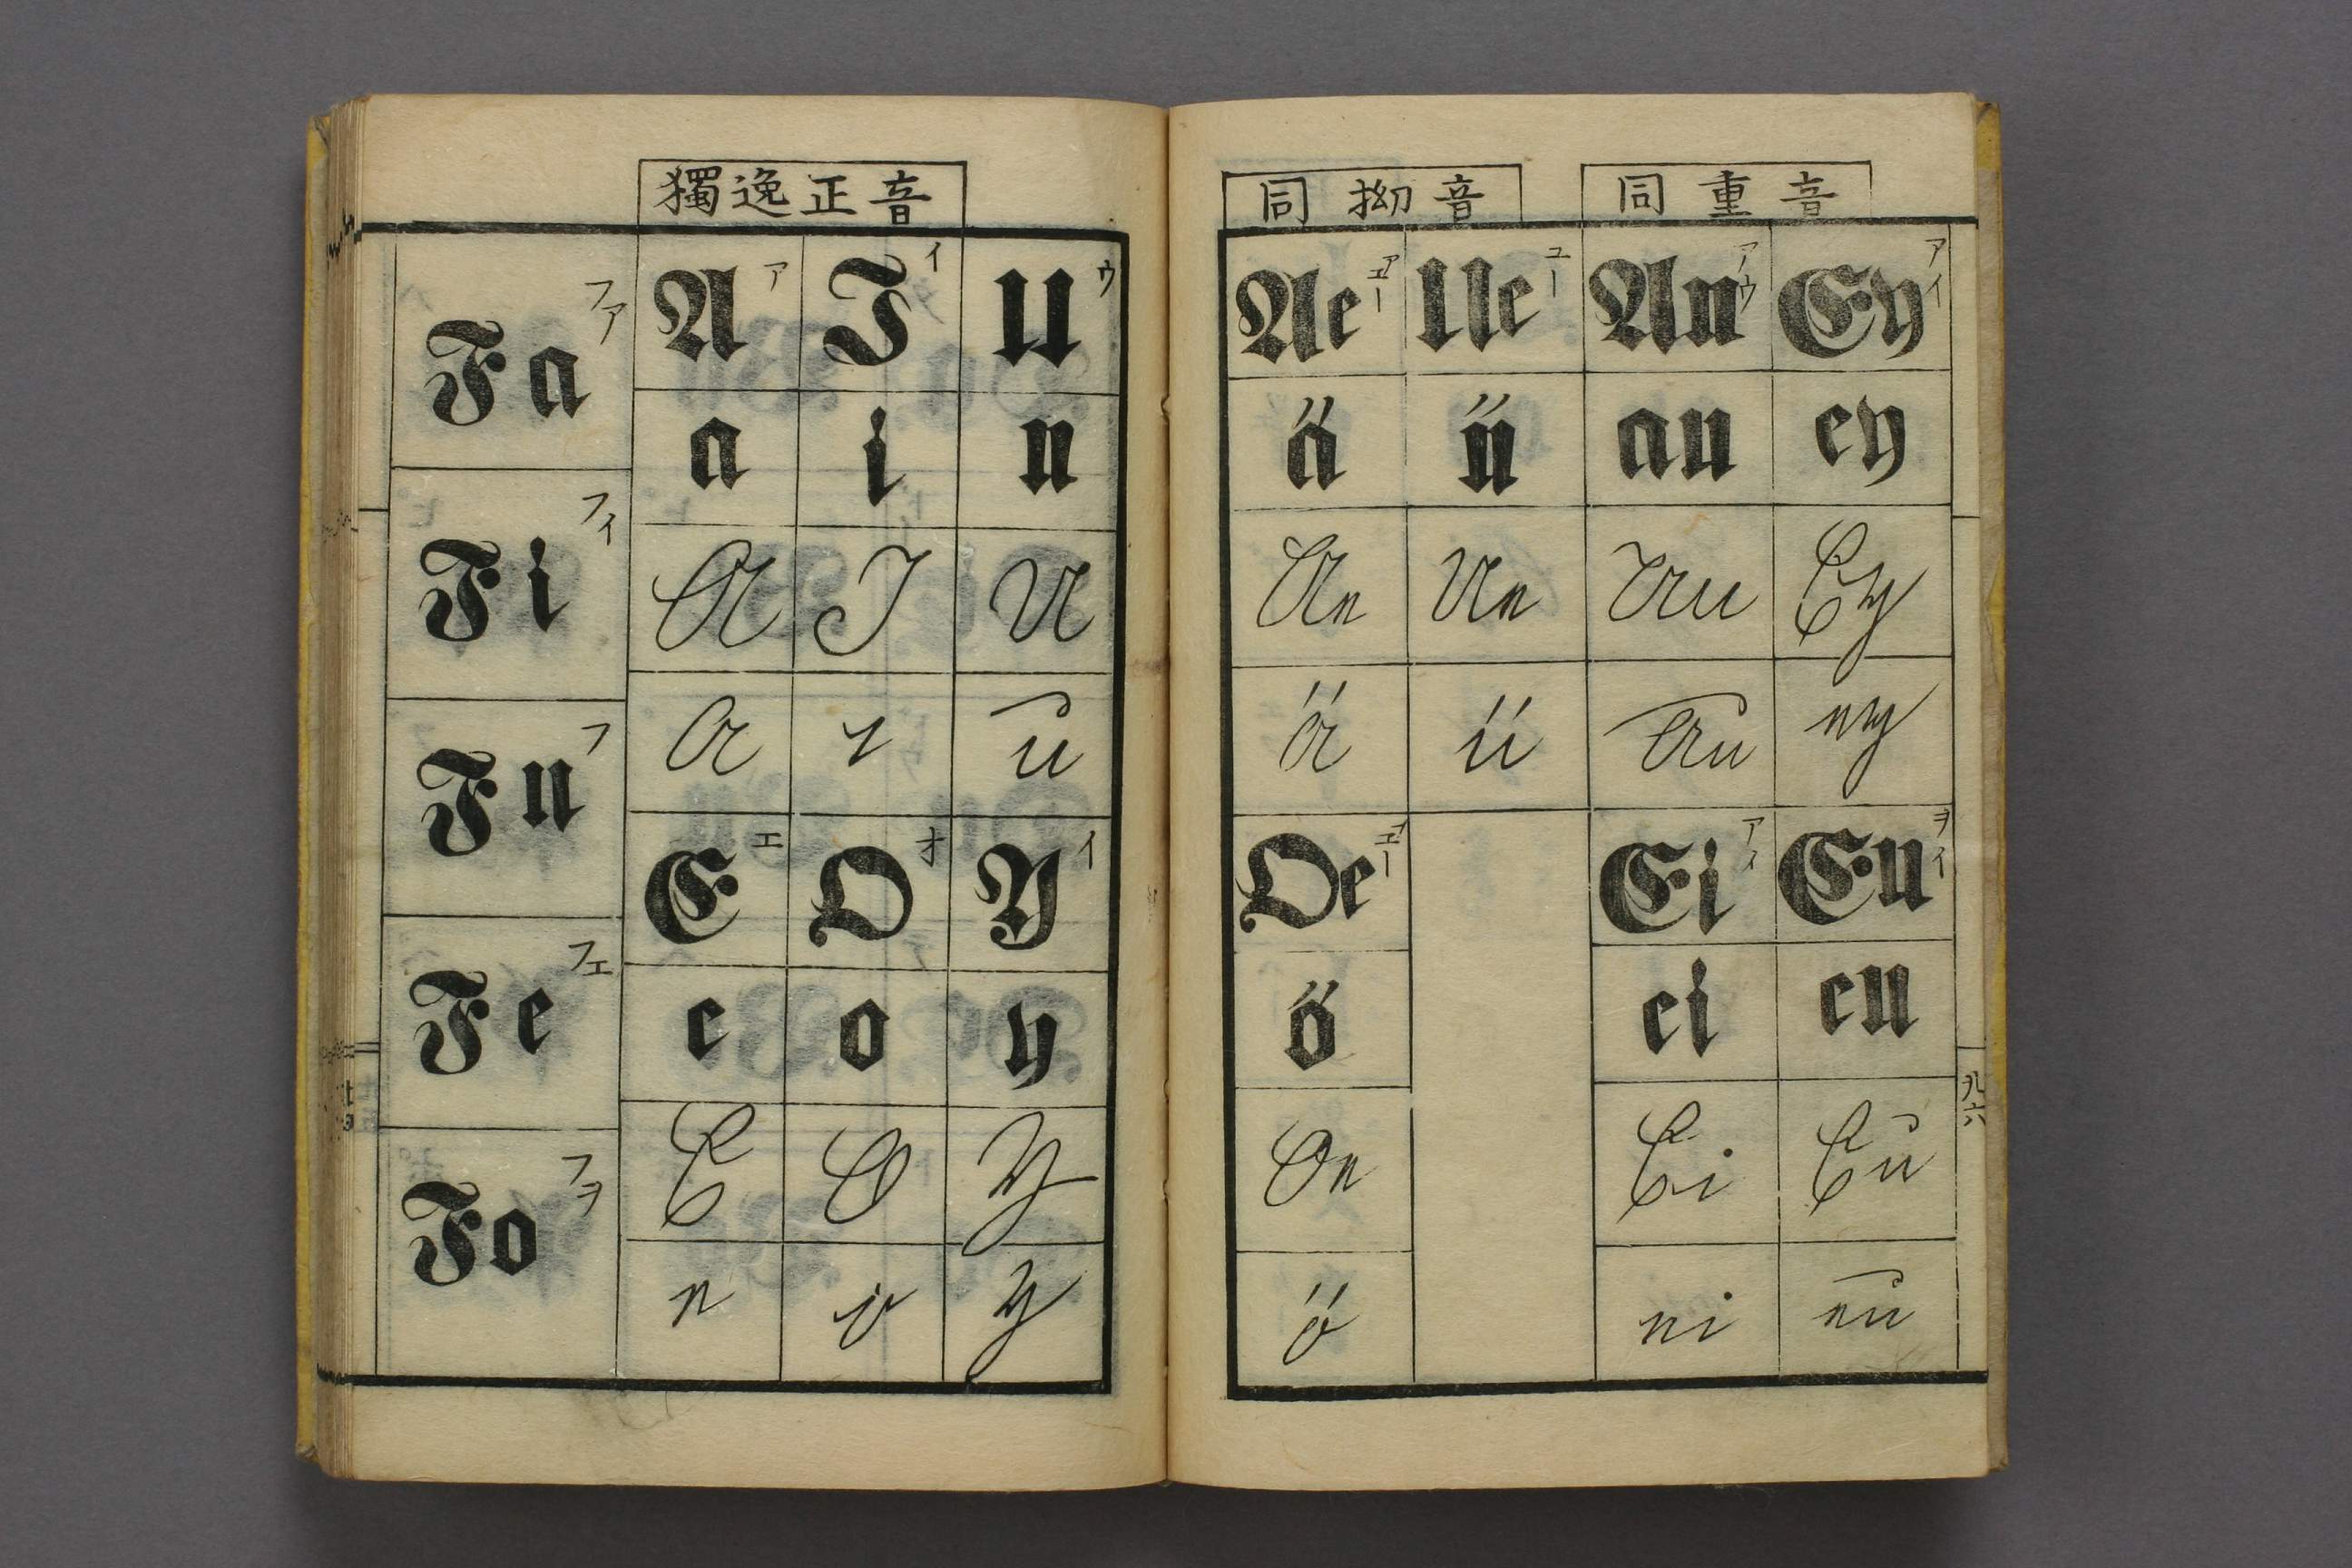 獨逸正音
Fa ファ
Fi フィ
Fu フ
Fe フェ
Fo フヲ
A ア I イ U ウ
a i u
A I U
a i u
E エ O オ Y イ
e o y
E O Y
e o y
同拗音 同重音
Ae アエー Ue ユー Au アウ Ey アイ
ä ü au ey
Ae Ue Au Ey
ä ü au ey
Oe ヲエー Ei アイ Eu ヲイ
ö ei eu
Oe Ei Eu
ö ei eu
九六